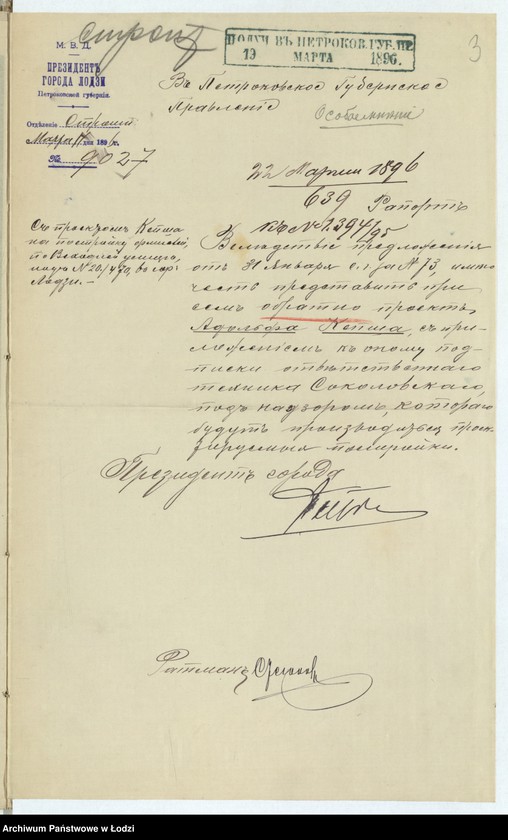 строит
3
М. В. Д.
ПРЕЗИДЕНТЪ
ГОРОДА ЛОДЗИ
Петроковской губерніи.
ПОЛУЧ ВЪ ПЕТРОКОВ. ГУБ. ПР.
19 МАРТА 1896.
Въ Петроковское Губернское
Правленіе
Отдѣленіе Строит
Марта дня 1896 г.
№ 9027
22 Марта 1896
639
Рапортъ
къ № 1394/95
Съ проектомъ Кепша
на постройку
по Входной улицѣ,
подъ № 20/430, въ гор.
Лодзи. —
Вслѣдствіе предложенія
отъ 31 Января с. г. за № 73, имѣю
честь представить при
семъ обратно проектъ
Адольфа Кепша, съ при-
ложеніемъ къ оному под-
писки отвѣтственнаго
техника Соколовскаго,
подъ надзоромъ котораго
будутъ производиться проек-
тируемыя постройки.
Президентъ города
Ратманъ
Archiwum Państwowe w Łodzi